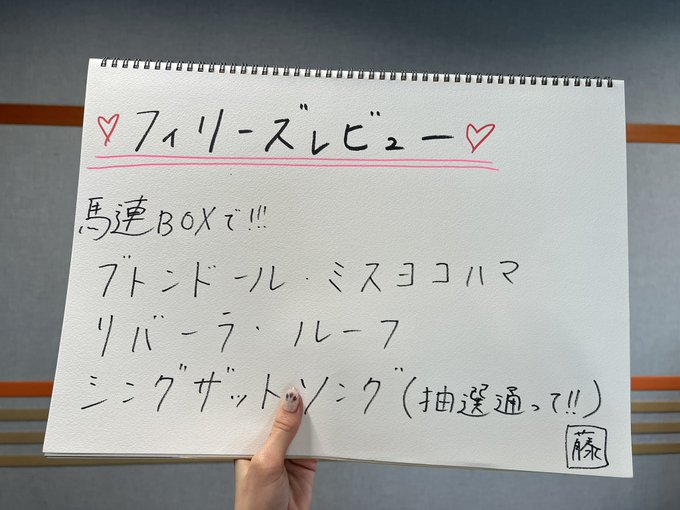 ♡フィリーズレビュー♡
馬連BOXで!!!
ブトンドール・ミスヨコハマ
リバーラ・ルーフ
シングザットソング(抽選通って!!)
藤